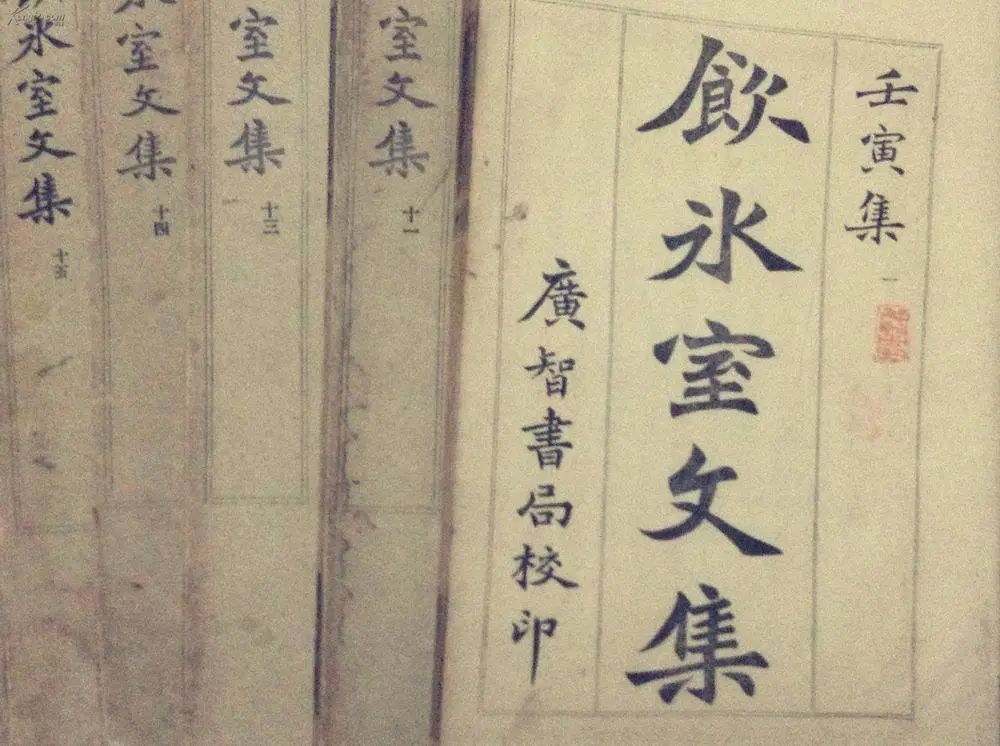 壬寅集 一
飲冰室文集
廣智書局校印
室文集 十一
室文集 十三
冰室文集 十四
飲冰室文集 十五